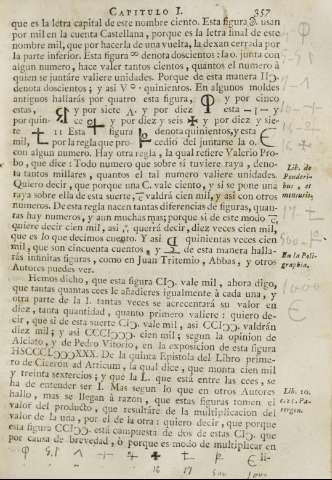 CAPITULO I. 357
que es la letra capital de este nombre ciento. Esta figura usan
por mil en la cuenta Castellana, porque es la letra final de este
nombre mil, que por hacerla de una vuelta, la dexan cerrada por
la parte inferior. Esta figura ∞ denota doscientos: la o. junta con
algun numero, hace valer tantos cientos, quantos el numero à
quien se juntáre valiere unidades. Porque de esta manera IIↄ.
denota doscientos; y asi V o. quinientos. En algunos moldes
antiguos hallarás por quatro esta figura, y por cinco
estas, y por siete Λ. y por diez esta —|— y
por quince y por diez y seis y por diez y siete
11 Esta figura denota quinientos, y esta Є
mil, por la regla que procedió del juntarse la o.
con algun numero. Hay otra regla, la qual refiere Valerio Probo,
que dice: Todo numero que sobre sí tuviere raya, denota
tantos millares, quantos el tal numero valiere unidades.
Quiero decir, que porque una C. vale ciento, y si se pone una
raya sobre ella de esta suerte, valdrá cien mil, y asi con otros
numeros. De esta regla nacen tantas diferencias de figuras, quantas
hay numeros, y aun muchas mas; porque si de este modo
quiere decir cien mil, asi querrá decir, diez veces cien mil,
que es lo que decimos cuento. Y asi quinientas veces cien
mil, que son cincuenta cuentos, y de esta manera hallarás
infinitas figuras, como en Juan Tritemio, Abbas, y otros
Autores puedes ver.
Hemos dicho, que esta figura CIↄ. vale mil, ahora digo,
que tantas quantas cees le añadieres igualmente à cada una, y
otra parte de la I. tantas veces se acrecentará su valor en
diez, tanta quantidad, quanto primero valiere: quiero decir,
que si de esta suerte CIↄ. vale mil, asi CCIↄↄ. valdrán
diez mil; y asi CCCIↄↄↄ. cien mil; segun la opinion de
Alciato, y de Pedro Vitorio, en la exposicion de esta figura
HSCCCIↄↄↄXXX. De la quinta Epistola del Libro primero
de Ciceron ad Atticum, la qual dice, que monta cien mil
y treinta sextercios; y que la I. que está entre las cees, se
ha de entender ser I. Mas segun lo que en otros Autores
hallo, mas se llegan à razon, que estas figuras tomen el
valor del producto, que resultáre de la multiplicacion del
valor de la una, por el de la otra: quiero decir, que porque
esta figura CCIↄↄ. está compuesta de dos de estas CIↄ. que
por causa de brevedad, ò porque es modo de multiplicar en
Lib. de
Ponderibus,
et
mensuris.
En la Poligraphia.
Lib. 10.
c.21. Parergon.
li-
16 17 500 1000